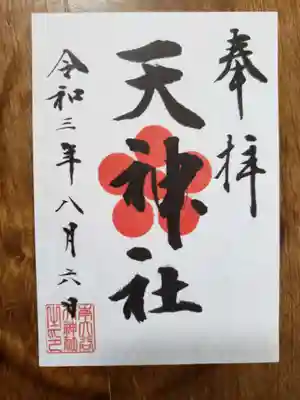 奉拝
天神社
令和三年八月六日